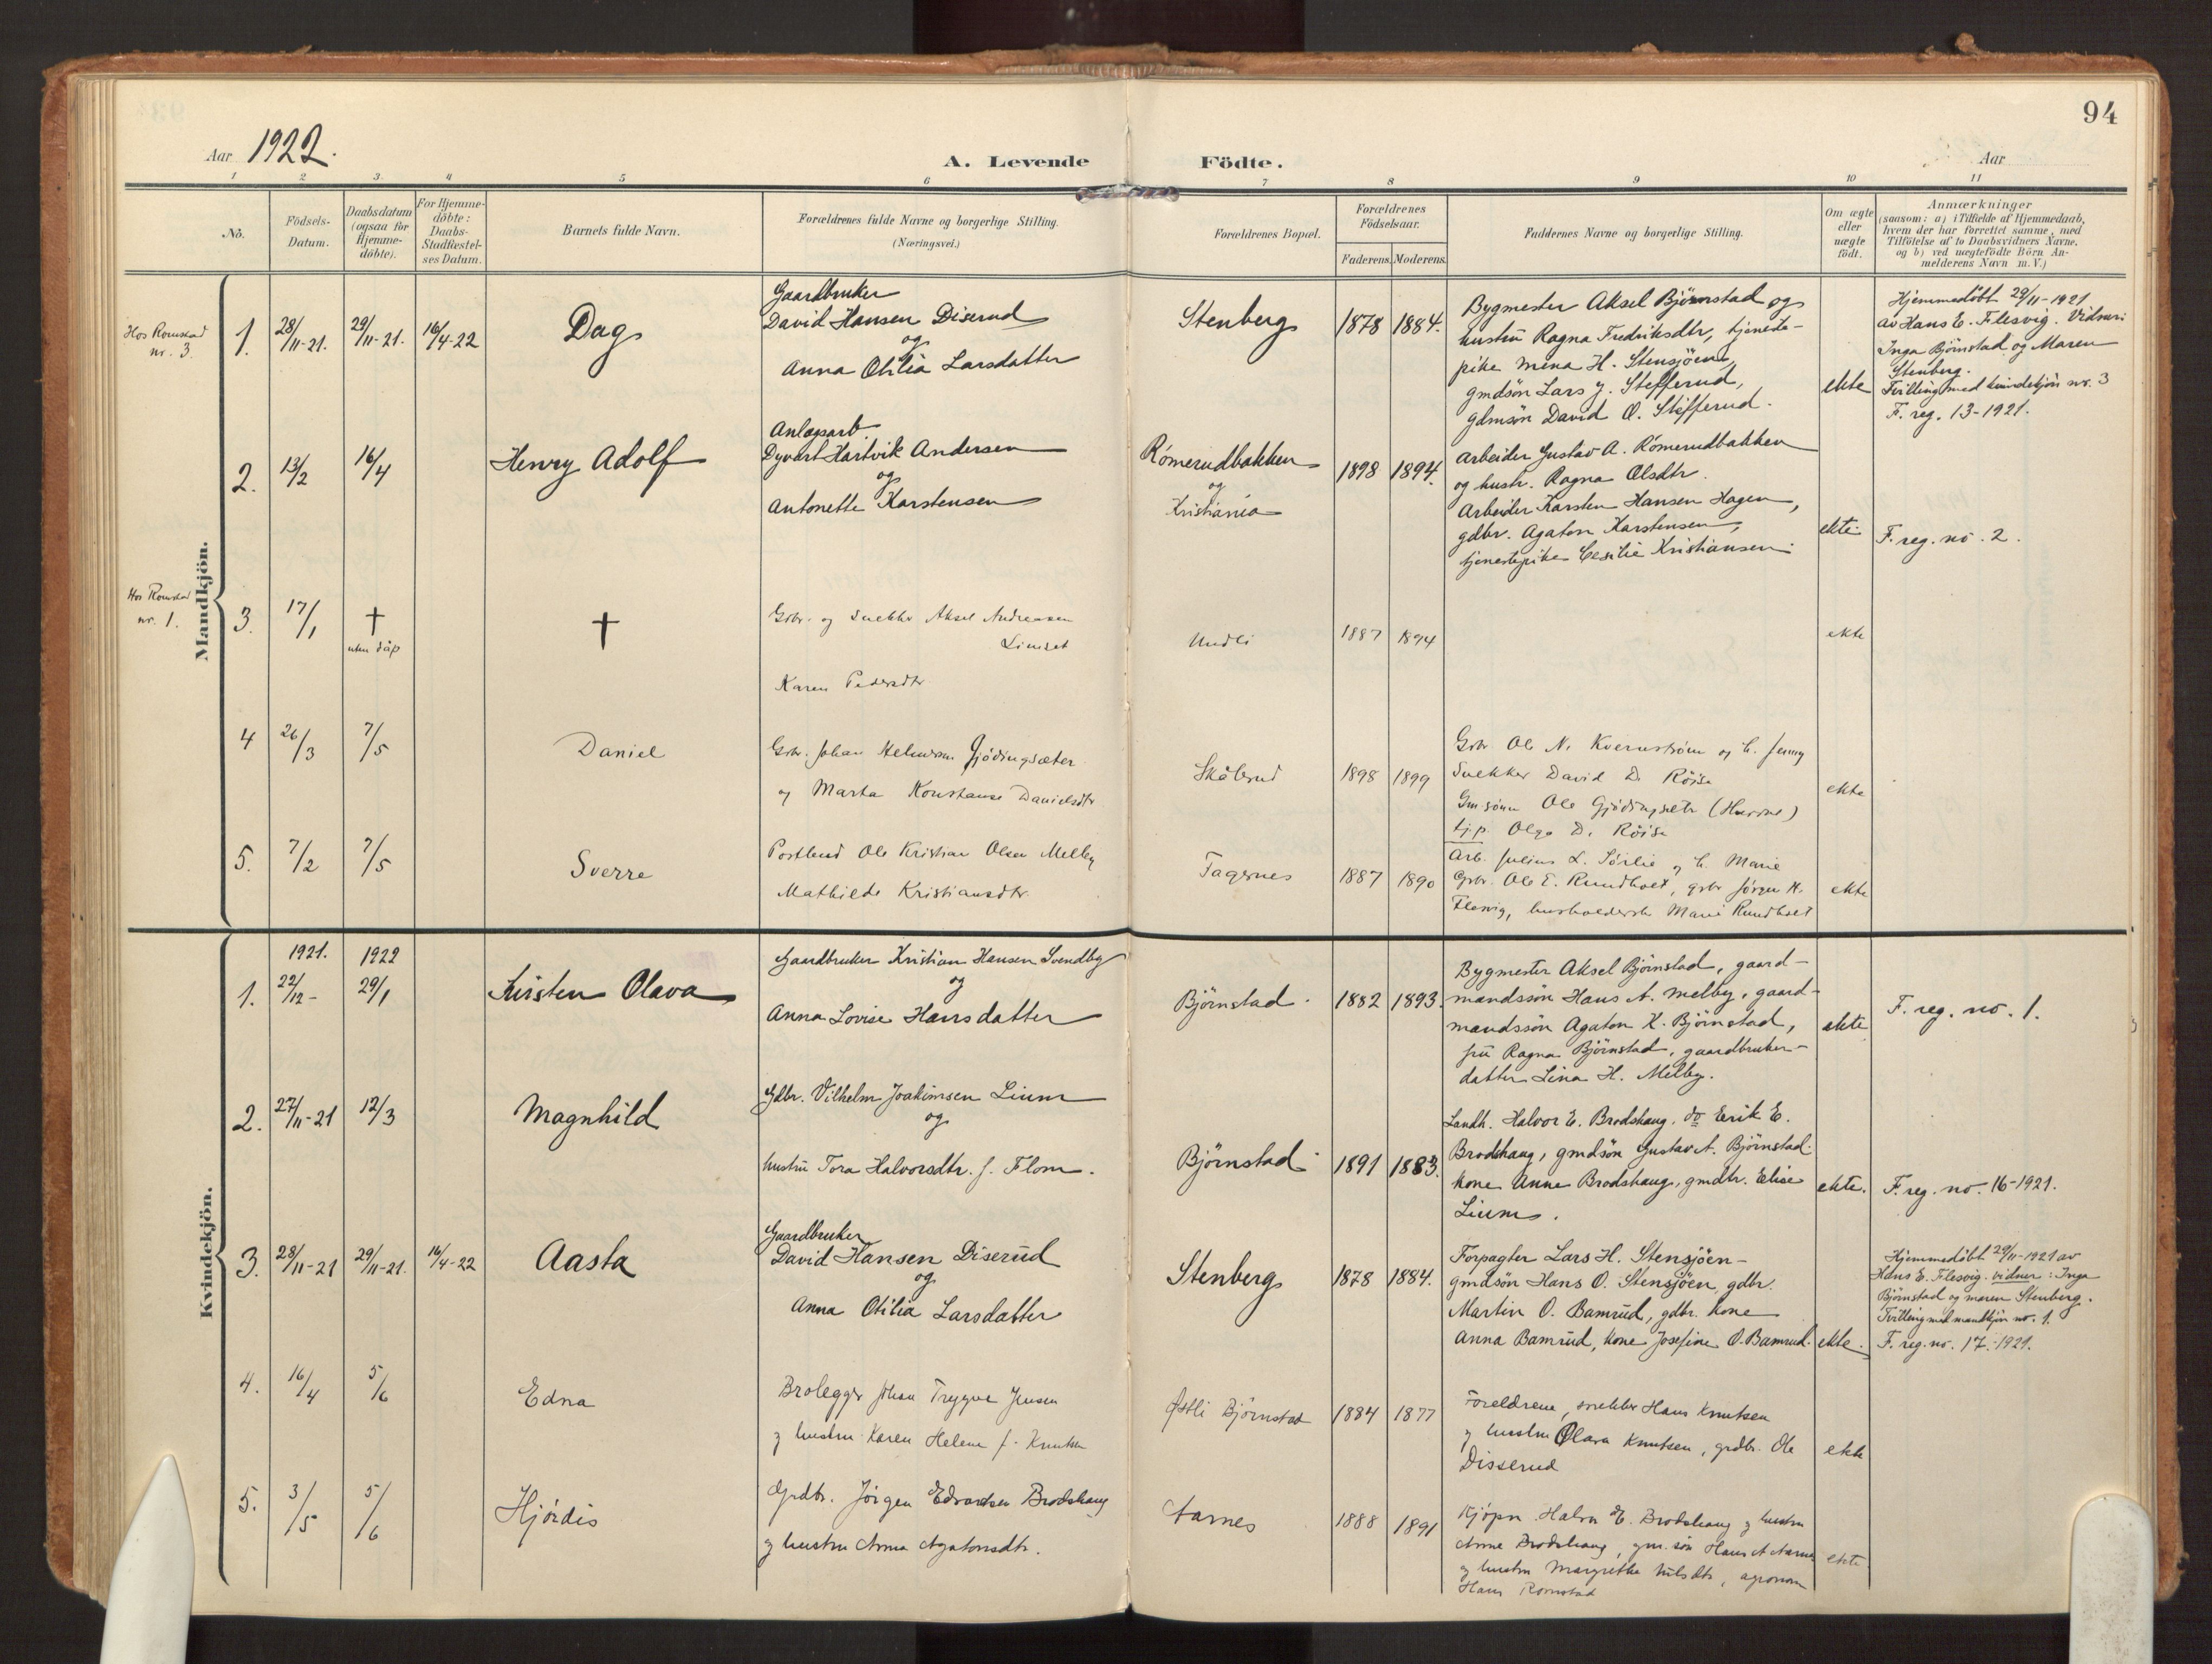 94
Aar 1922.
A. Levende Födte.
Aar
1 2 3 4 5 6 7 8 9 10 11
No.
Födsels-
Datum.
Daabsdatum
(ogsaa for
Hjemme-
döbte).
For Hjemme-
döbte:
Daabs-
Stadfæstel-
ses Datum.
Barnets fulde Navn.
Forældrenes fulde Navne og borgerlige Stilling.
(Næringsvei.)
Forældrenes Bopæl.
Forældrenes
Födselsaar.
Faderens. Moderens.
Faddernes Navne og borgerlige Stilling.
Om ægte
eller
uægte
födt.
Anmærkninger
(saasom: a) i Tilfælde af Hjemmedaab,
hvem der har forrettet samme, med
Tilföielse af to Daabsvidners Navne,
og b) ved uægtefödte Börn An-
melderens Navn m. V.)
Mandkjön.
Hos Romstad
nr. 3.
1.
28/11-21.
29/11-21.
16/4-22
Dag
Gaardbruker
David Hansen Diserud
og
Anna Otilia Larsdatter
Stenberg
1878
1884.
Bygmester Aksel Björnstad og
hustru Ragna Fredriksdtr, tjeneste-
pike Mina H. Stensjöen,
gmdsön Lars J. Stefferud,
gdmsön David O. Stefferud.
ekte
Hjemmedöbt 29/11-1921
av Hans E. Flesvig. Vidner:
Inga Björnstad og Maren
Stenberg.
Tvilling med kvindekjön nr. 3
F. reg. 13-1921.
2.
13/2
16/4
Henry Adolf
Anlægsarb.
Dyvart Hartvik Andersen
og
Antonette Karstensen
Römerudbakken
og
Kristiania
1898
1894.
Arbeider Gustav A. Römerudbakken
og hustr. Ragna Olsdtr.
Arbeider Karsten Hansen Hagen,
gdbr. Agaton Karstensen,
tjenestepike Cesilie Kristiansen.
ekte.
F. reg. no. 2.
Hos Romstad
nr. 1.
3.
17/1
†
uten dåp
†
Gbr. og Snekker Aksel Andreassen
Limset
Karen Pedersdtr
Undli
1887
1894
ekte
4
26/3
7/5
Daniel
Gbr. Johan Gjödingsæter
og Marta Konstanse Danielsdtr
Skålerud
1898
1899
Gbr Ole N. Kvernström og h. Jenny
Snekker David D. Röise
Gm. sönn Ole Gjödingsetr
tj.p. Olga D. Röise
ekte
5.
7/2
7/5
Sverre
Postbud Ole Kristian Olsen Melby
Mathilde Kristiansdtr.
Fagernes
1887
1890
Arb. Julius L. Sörlie og h. Marie
Grbr. Ole E. Rundhoet, grbr Jörgen H.
Flesvig, husholderske Marie Rundhoet
ekte
Kvindekjön.
1.
1921.
22/12-
1922
29/1
Kirsten Olava
Gaardbruker Kristian Hansen Svendby
og
Anna Lovise Hansdatter
Björnstad.
1882
1893.
Bygmester Aksel Björnstad, gaard-
mandssön Hans A. Melby, gaard-
mandssön Agaton K. Björnstad,
fru Ragna Björnstad, gaardbruker-
datter Lina H. Melby.
ekte
F. reg. no. 1.
2.
27/11-21
12/3
Magnhild
Gdbr. Vilhelm Joakimsen Lium
og
hustru Tora Halvorsdtr. f. Flom.
Björnstad
1891
1883.
Landh. Halvor E. Brodshaug. do Erik E.
Brodshaug, gmdsön Gustav A. Björnstad.
kone Anne Brodshaug, gmdtr. Elise
Lium.
ekte.
F. reg. no. 16-1921.
3.
28/11-21
29/11-21.
16/4-22
Aasta
Gaardbruker
David Hansen Diserud
og
Anna Otilia Larsdatter
Stenberg
1878
1884.
Forpagter Lars H. Stensjöen-
gmdsön Hans O. Stensjöen, gdbr.
Martin O. Bamrud, gdbr. kone
Anna Bamrud, kone Josefine O. Bamrud.
ekte.
Hjemmedöbt 29/11-1921 av
Hans E. Flesvig. vidner: Inga
Björnstad og maren Stenberg.
Tvilling med mandkjön no. 1.
F. reg. no. 17.-1921.
4.
16/4
5/6
Edna
Brolegger Johan Trygve Jensen
og hustru Karen Helene f. Knutsen
Östli Björnstad
1884
1877
Foreldrene, snekker Hans Knutsen
og hustru Olava Knutsen, grdbr. Ole
Disserud
ekte
5.
3/5
5/6
Hjördis
Grdbr. Jörgen Edvardsen Brodshaug
og hustru Anna Agatonsdtr.
Aarnes
1888
1891
Kjöpm. Halvor E. Brodshaug og hustru
Anne Brodshaug, gm. sön Hans A. Aarnes
og hustru Margrethe Nilsdtr, agronom
Hans Romstad
ekte